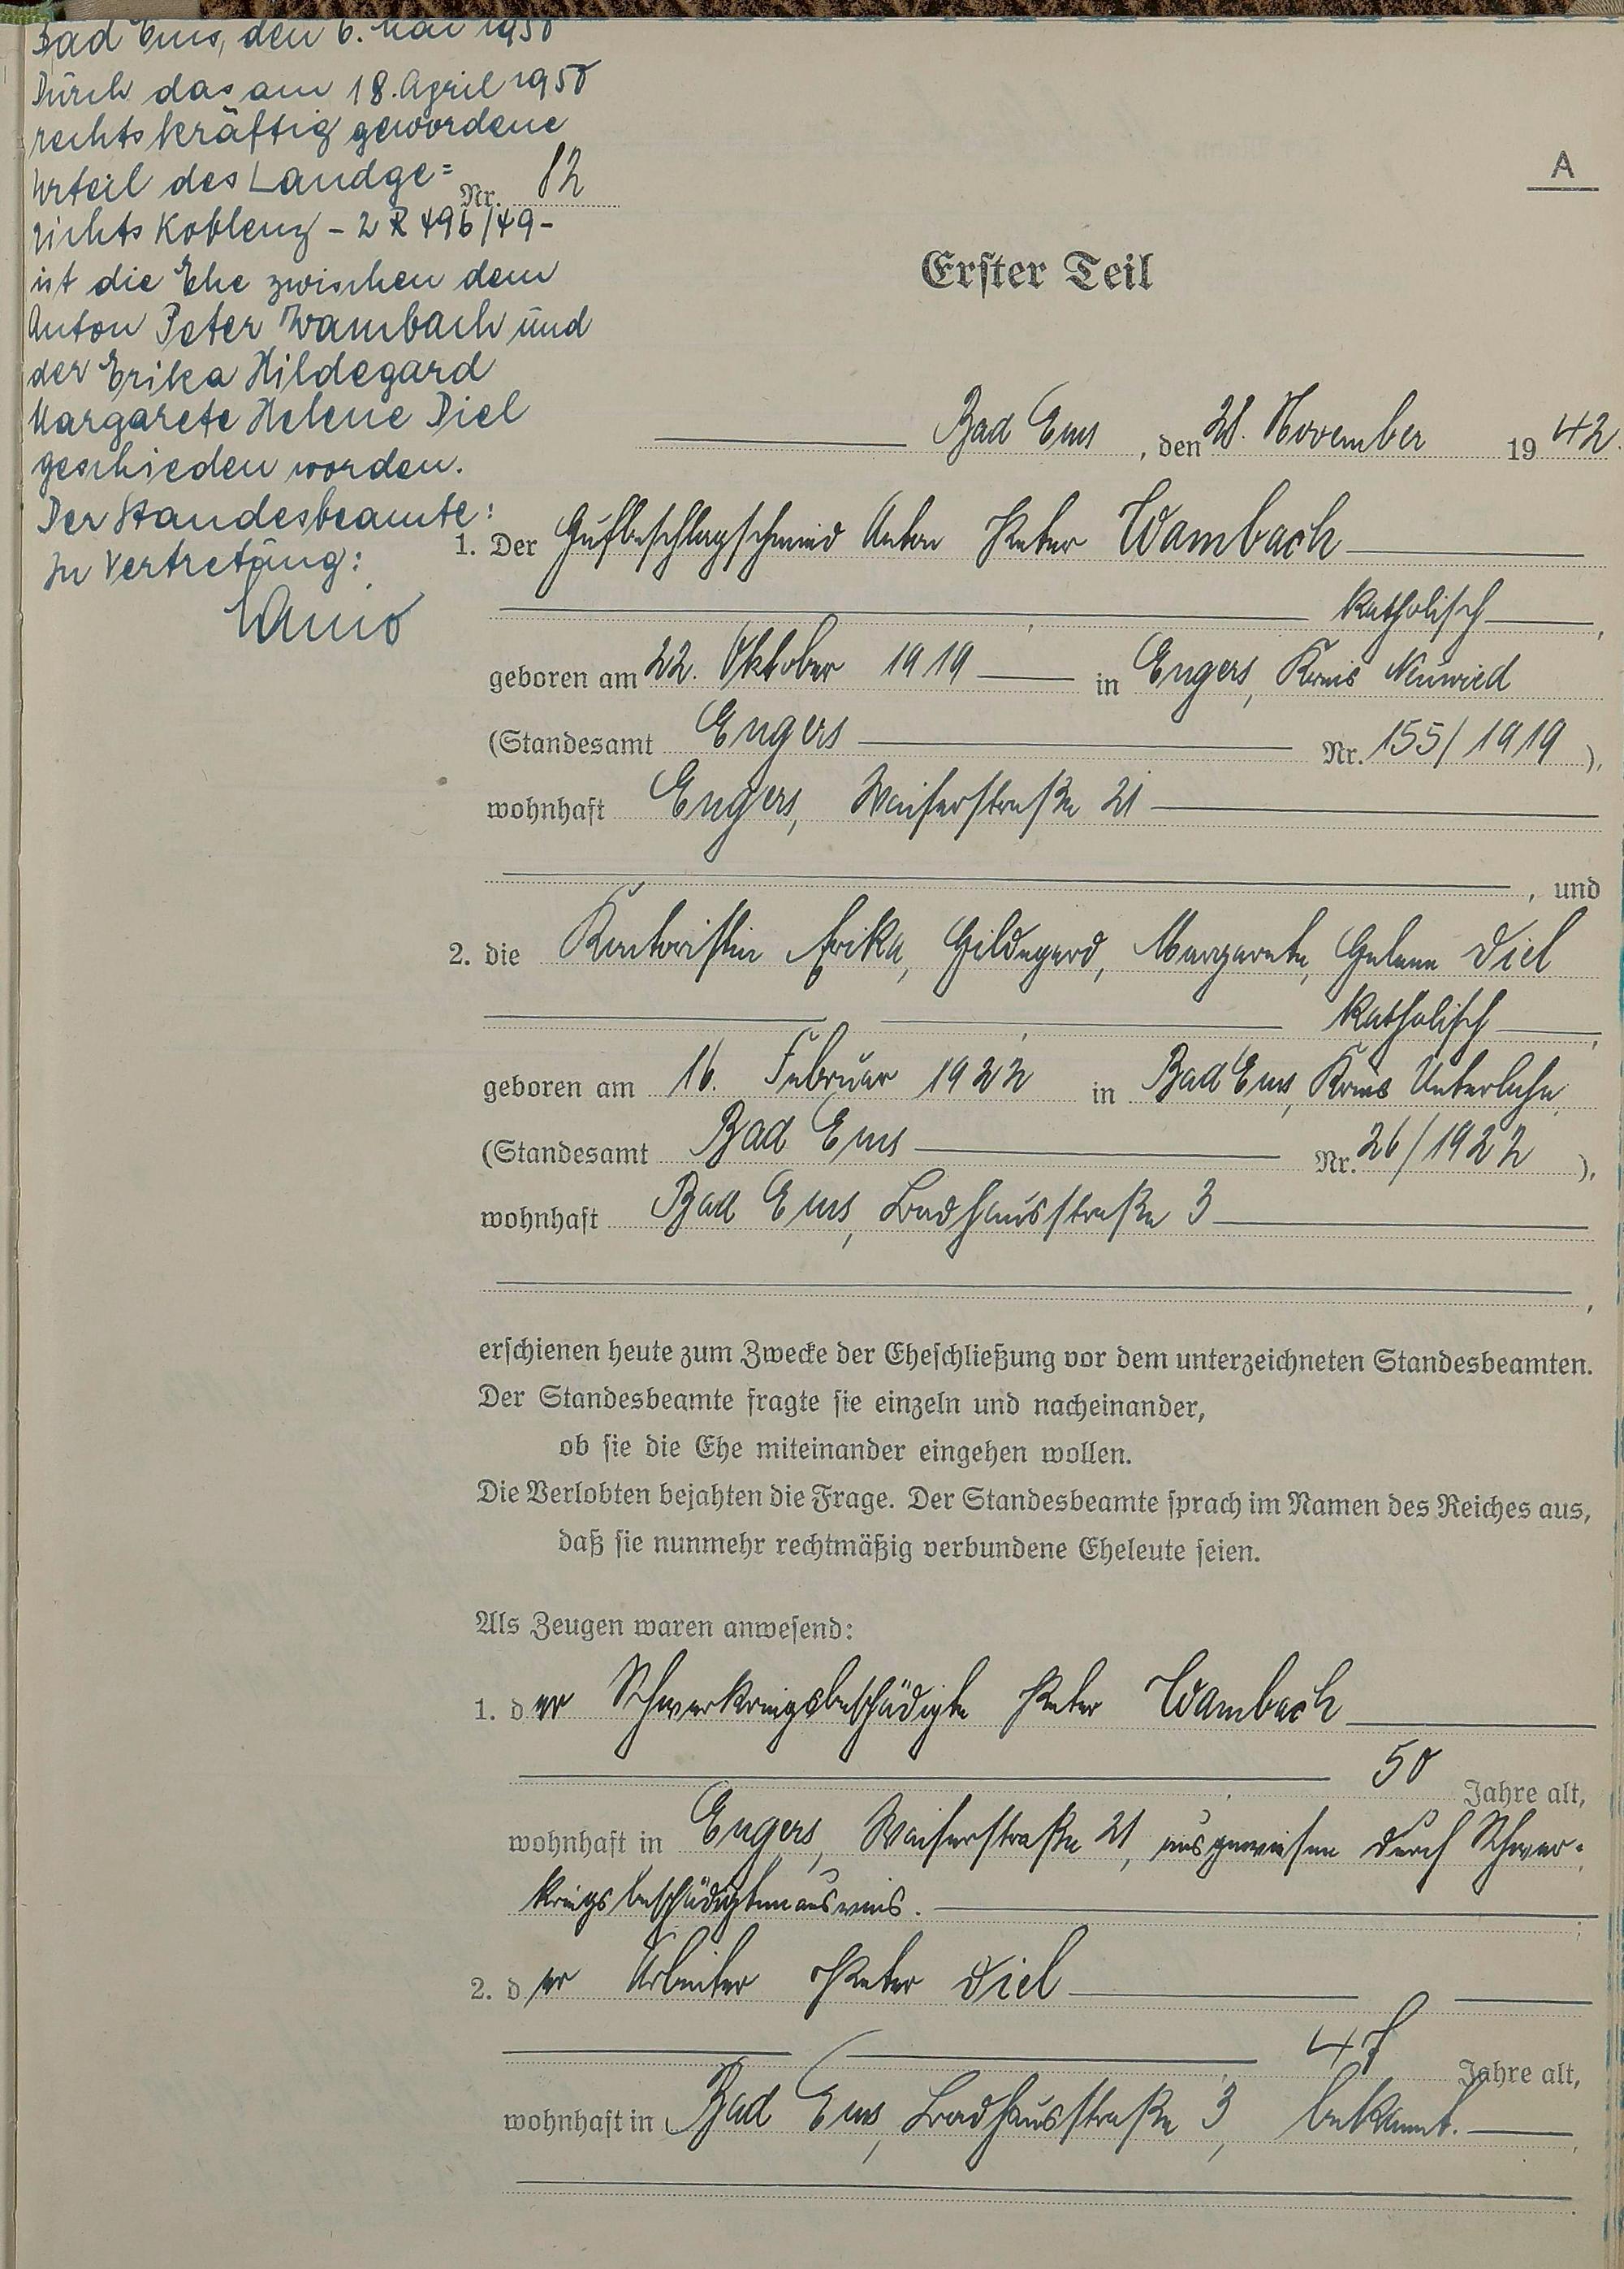 Bad Ems, den 6. Mai 1950
Durch das am 18. April 1950
rechtskräftig gewordene
Urteil des Landge=
richts Koblenz - 2 R 496/49 -
ist die Ehe zwischen dem
Anton Peter Wambach und
der Erika Hildegard
Margarete Helene Diel
geschieden worden.
Der Standesbeamte:
In Vertretung:
A
Nr. 82
Erster Teil
Bad Ems, den 28. November 1942.
1. Der Hufbeschlagschmied Anton Peter Wambach
katholisch,
geboren am 22. Oktober 1919 in Engers, Kreis Neuwied
(Standesamt Engers Nr. 155/1919),
wohnhaft Engers, 21
, und
2. die Kontoristin Erika, Hildegard, Margarete, Helene Diel
katholisch,
geboren am 16. Februar 1922 in Bad Ems, Kreis Unterlahn
(Standesamt Bad Ems Nr. 26/1922),
wohnhaft Bad Ems, Badhausstraße 3
,
erschienen heute zum Zwecke der Eheschließung vor dem unterzeichneten Standesbeamten.
Der Standesbeamte fragte sie einzeln und nacheinander,
ob sie die Ehe miteinander eingehen wollen.
Die Verlobten bejahten die Frage. Der Standesbeamte sprach im Namen des Reiches aus,
daß sie nunmehr rechtmäßig verbundene Eheleute seien.
Als Zeugen waren anwesend:
1. der Schwerkriegsbeschädigte Peter Wambach
50 Jahre alt,
wohnhaft in Engers, 21, ausgewiesen durch Schwer-
kriegsbeschädigtenausweis.
2. der Arbeiter Peter Diel
47 Jahre alt,
wohnhaft in Bad Ems, Badhausstraße 3, bekannt.